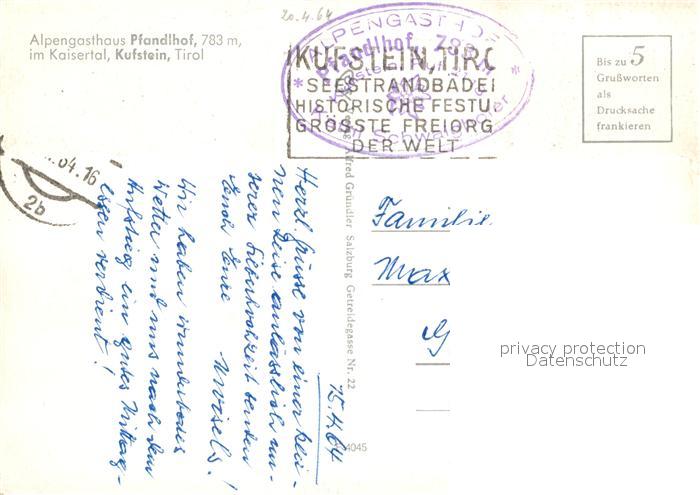 20.4.64
Alpengasthaus Pfandlhof, 783 m,
im Kaisertal, Kufstein, Tirol
ALPENGASTHOF
Pfandlhof, 783 m
KUFSTEIN, TIRO
SEESTRANDBÄDER
HISTORISCHE FESTU
GRÖSSTE FREIORG
DER WELT
Bis zu 5
Grußworten
als
Drucksache
frankieren
.04.16
2b
15.4.64
Herzl. Grüsse von einer klei-
nen Reise anlässlich un-
serer Silberhochzeit senden
Euch Eure
Wir haben wunderbares
Wetter und uns nach dem
Aufstieg ein gutes Mittag-
essen verdient!
Alfred Gründler Salzburg Getreidegasse Nr. 22
4045
Familie
Max
G
privacy protection
Datenschutz